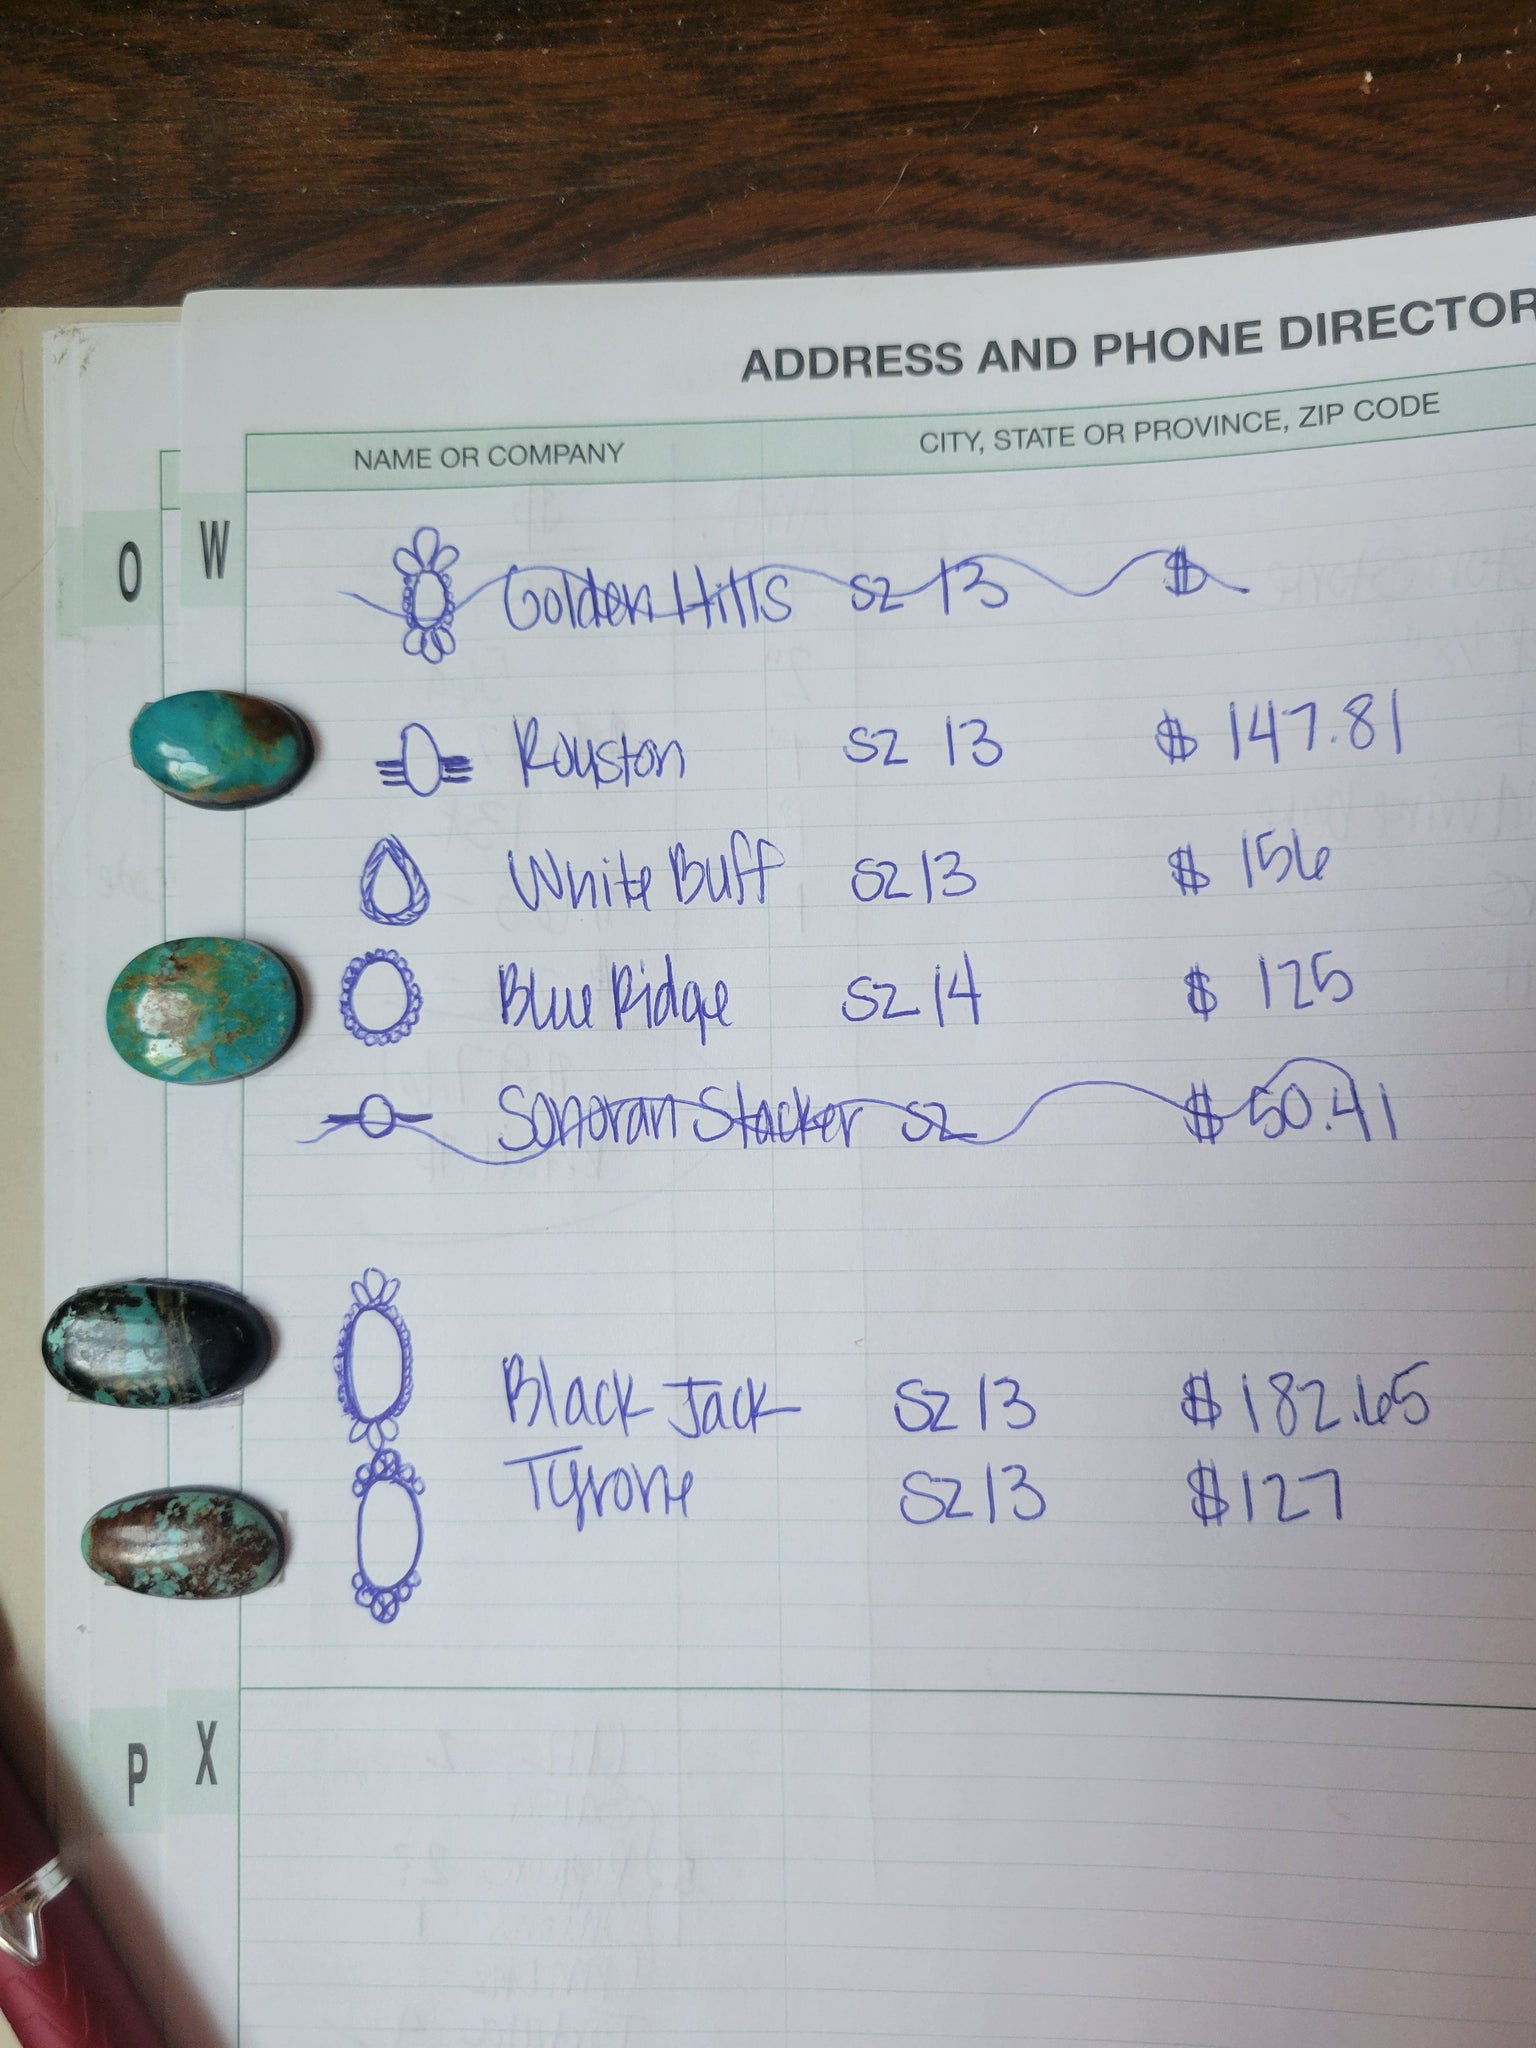 ADDRESS AND PHONE DIRECTOR
NAME OR COMPANY CITY, STATE OR PROVINCE, ZIP CODE
O W
Golden Hills sz 13 $
Royston sz 13 $ 147.81
White Buff sz 13 $ 156
Blue Ridge sz 14 $ 125
Sonoran Stacker sz $ 50.41
Black Jack sz 13 $ 182.65
Tyrone sz 13 $ 127
P X